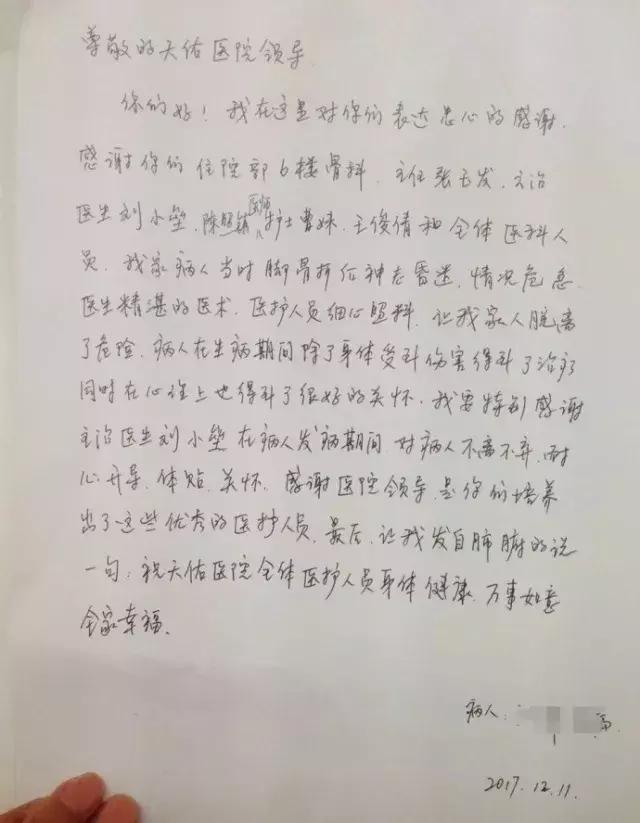 尊敬的天佑医院领导
你们好！我在这里对你们表达忠心的感谢.
感谢你们住院部6楼骨科.主任张玉发.主治
医生刘小垒.陈照辅医师护士曹妹.王俊倩和全体医科人
员.我家病人当时脚骨折后神志昏迷.情况危急.
医生精湛的医术.医护人员细心照料.让我家人脱离
了危险.病人在生病期间除了身体受到伤害得到了治疗
同时在心理上也得到了很好的关怀.我要特别感谢
主治医生刘小垒在病人发病期间.对病人不离不弃.耐
心开导.体贴.关怀.感谢医院领导.是你们培养
出了这些优秀的医护人员.最后.让我发自肺腑的说
一句:祝天佑医院全体医护人员身体健康.万事如意
全家幸福.
病人:
2017.12.11.